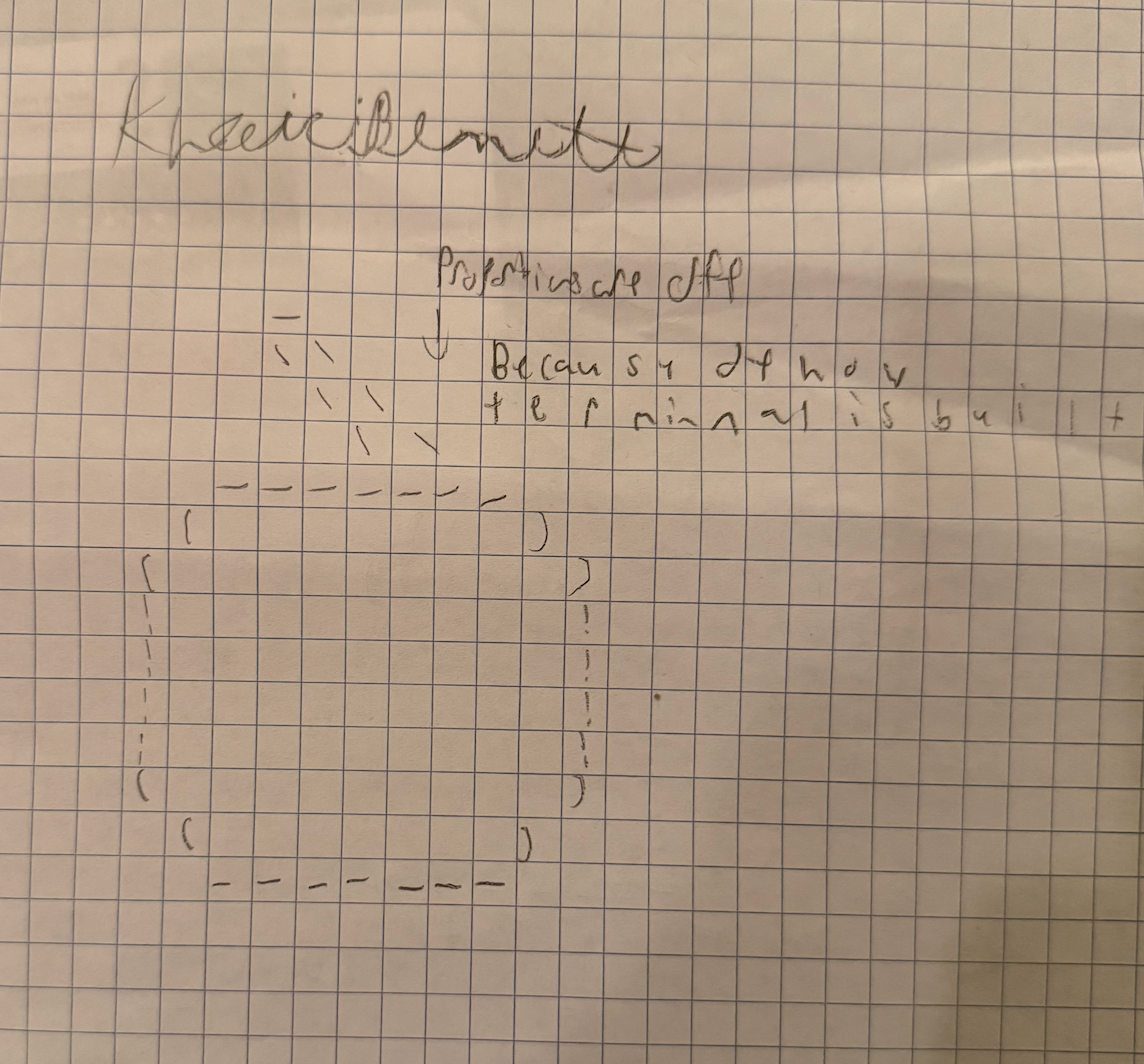 Bennett
Proportions are off
Because of how
terminal is built
-
\ \
\ \
\ \
- - - - - - -
( )
( )
| !
| !
| !
| !
( )
( )
- - - - - - -